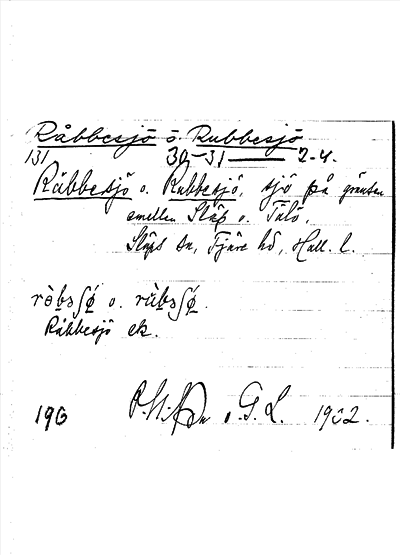 Råbbesjö o. Rubbesjö
131 30-31 — 2-4.
Råbbesjö o. Rubbesjö, sjö på gränsen
emellan Släp o. Tölö,
Släps sn, Fjäre hd, Hall. l.
rò̀bəʃǿ o. rùbəʃǿ.
Råbbesjö ek.
196 o. G. L. 1902.